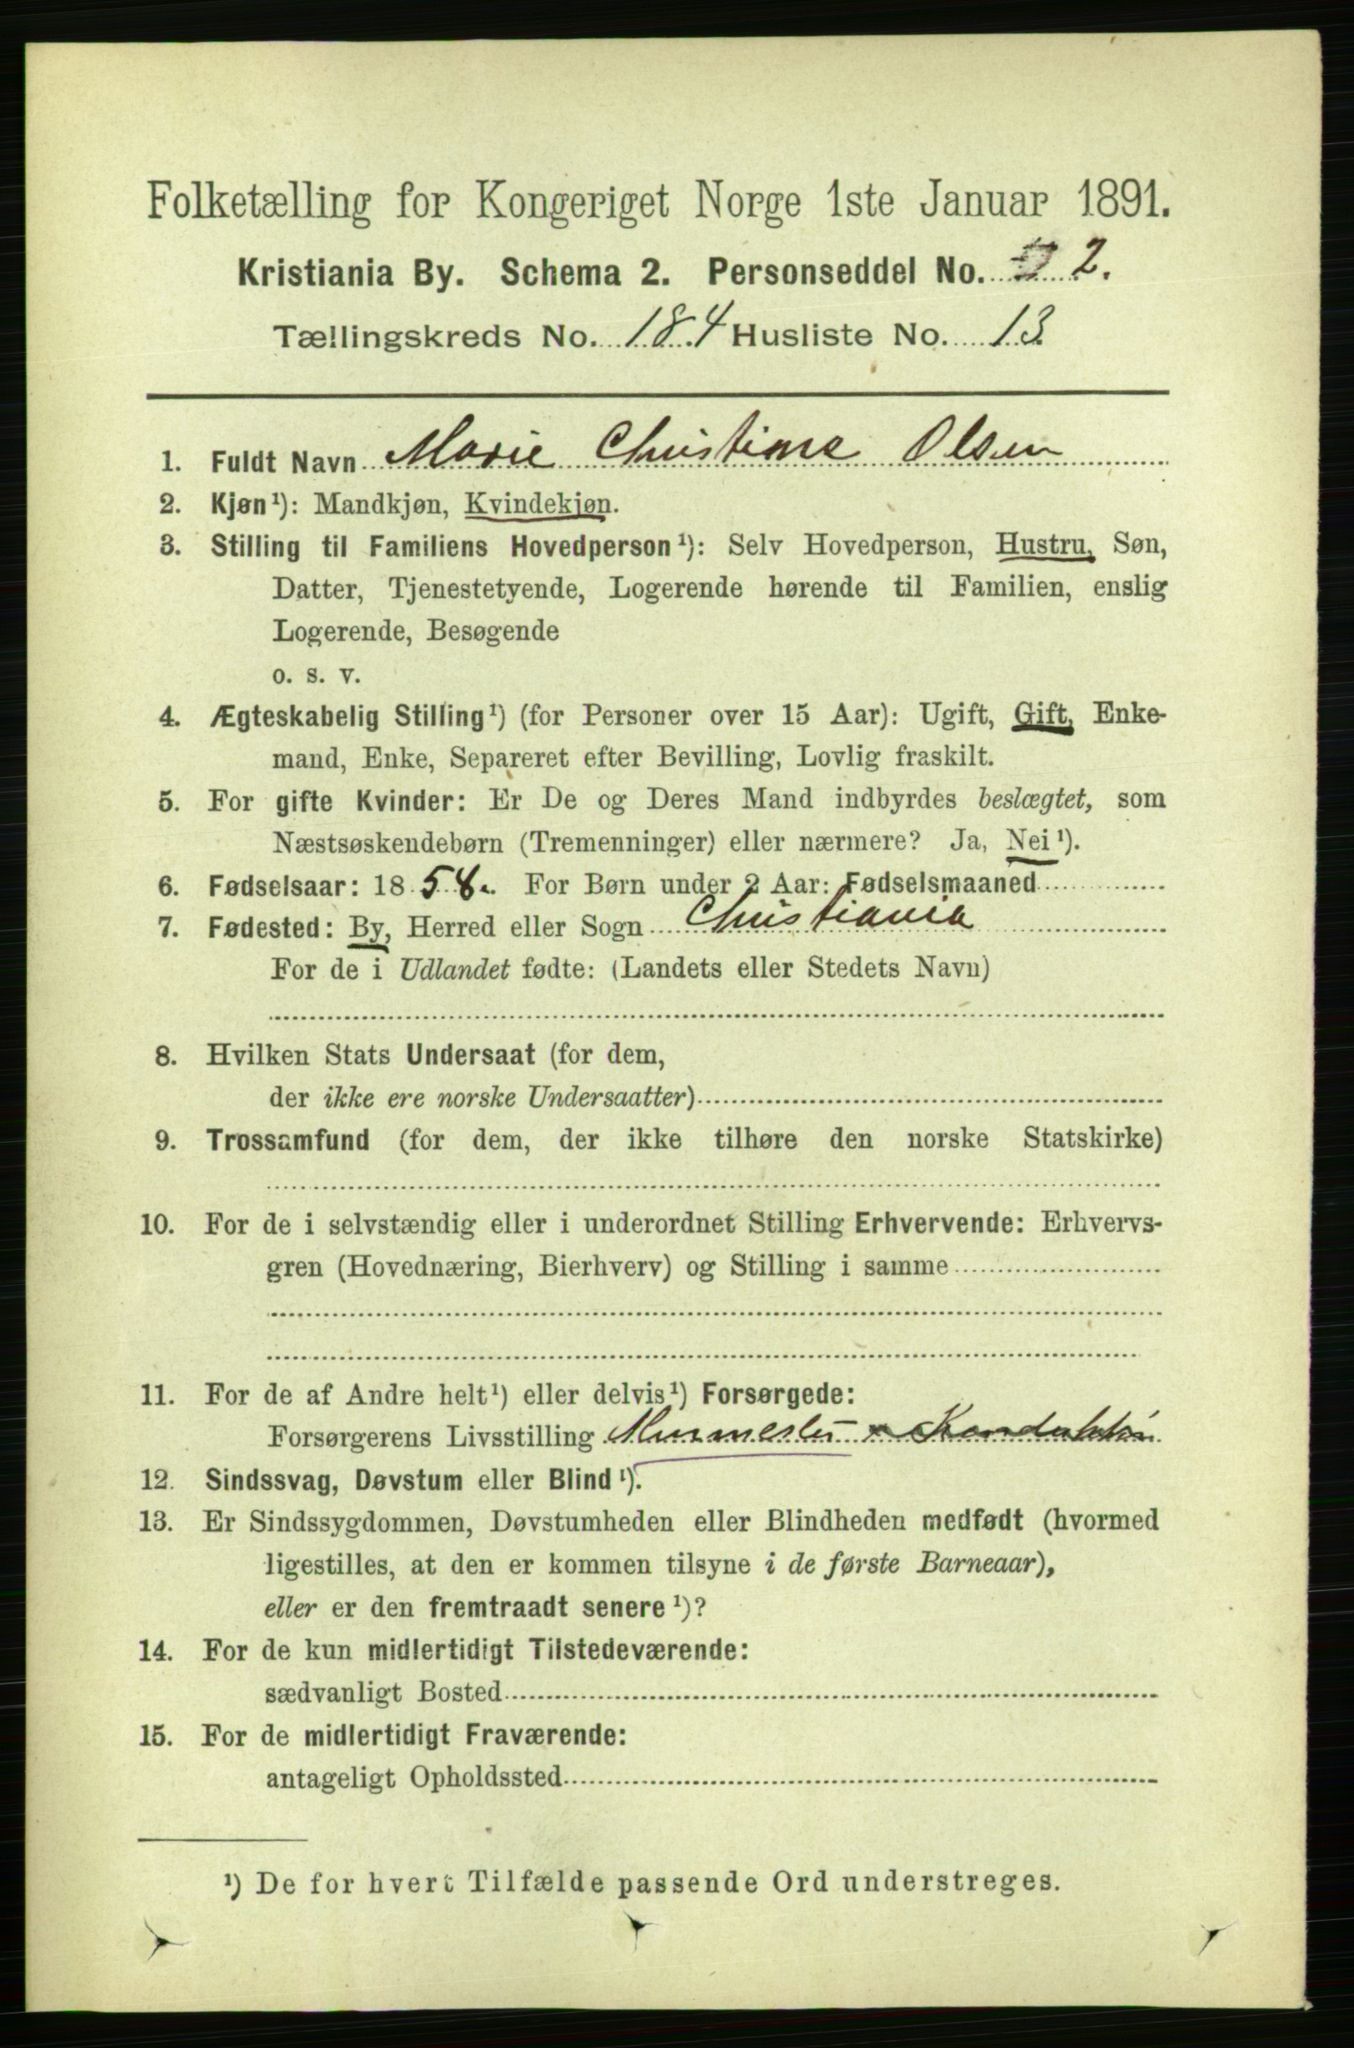 Folketælling for Kongeriget Norge 1ste Januar 1891.
Kristiania By. Schema 2. Personseddel No. 2.
Tællingskreds No. 184 Husliste No. 13
1. Fuldt Navn Marie Christine Olsen
2. Kjøn¹): Mandkjøn, Kvindekjøn.
3. Stilling til Familiens Hovedperson¹): Selv Hovedperson, Hustru, Søn,
Datter, Tjenestetyende, Logerende hørende til Familien, enslig
Logerende, Besøgende
o. s. v.
4. Ægteskabelig Stilling¹) (for Personer over 15 Aar): Ugift, Gift, Enke-
mand, Enke, Separeret efter Bevilling, Lovlig fraskilt.
5. For gifte Kvinder: Er De og Deres Mand indbyrdes beslægtet, som
Næstsøskendebørn (Tremenninger) eller nærmere? Ja, Nei¹).
6. Fødselsaar: 1858. For Børn under 2 Aar: Fødselsmaaned
7. Fødested: By, Herred eller Sogn Christiania
For de i Udlandet fødte: (Landets eller Stedets Navn)
8. Hvilken Stats Undersaat (for dem,
der ikke ere norske Undersaatter)
9. Trossamfund (for dem, der ikke tilhøre den norske Statskirke)
10. For de i selvstændig eller i underordnet Stilling Erhvervende: Erhvervs-
gren (Hovednæring, Bierhverv) og Stilling i samme
11. For de af Andre helt¹) eller delvis¹) Forsørgede:
Forsørgerens Livsstilling Murmester
12. Sindssvag, Døvstum eller Blind¹).
13. Er Sindssygdommen, Døvstumheden eller Blindheden medfødt (hvormed
ligestilles, at den er kommen tilsyne i de første Barneaar),
eller er den fremtraadt senere¹)?
14. For de kun midlertidigt Tilstedeværende:
sædvanligt Bosted
15. For de midlertidigt Fraværende:
antageligt Opholdssted
¹) De for hvert Tilfælde passende Ord understreges.